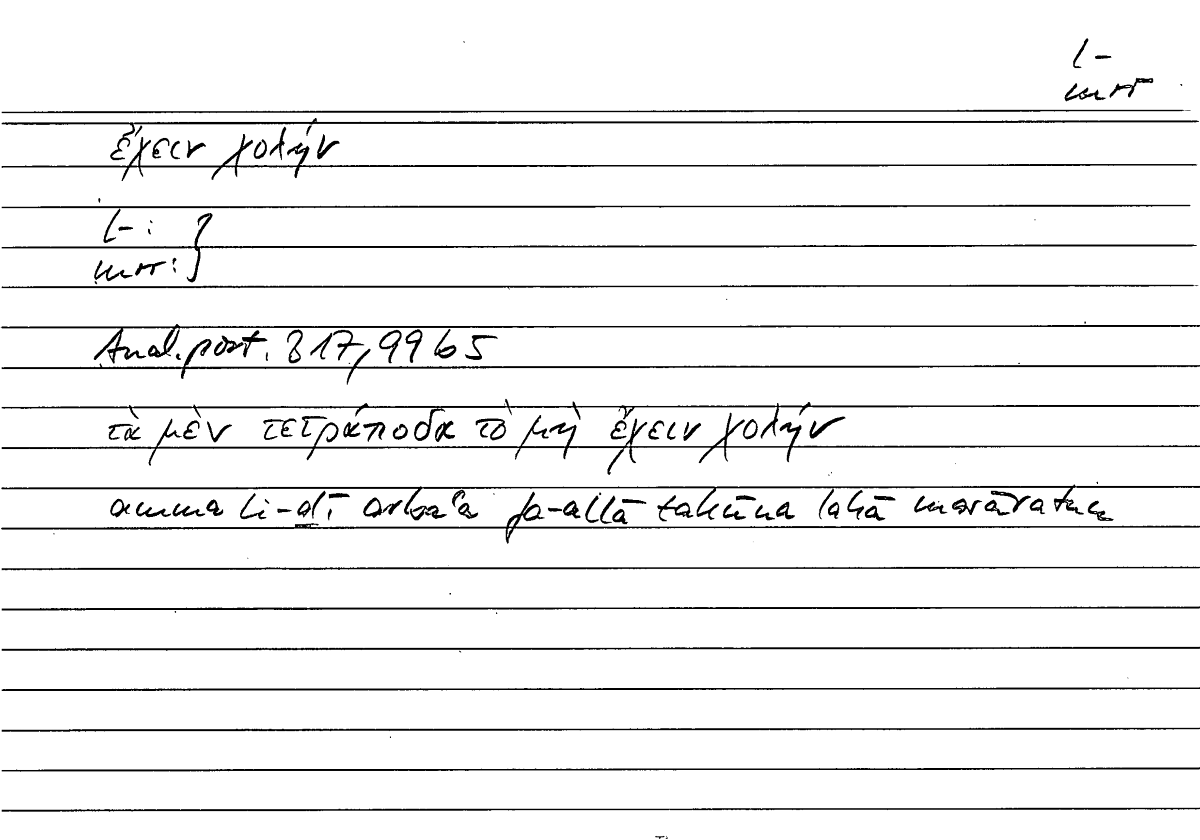 l-
mrr
ἔχειν χολήν
l- : }
mrr : }
Anal. post. B17, 99 b 5
τὰ μὲν τετράποδα τὸ μὴ ἔχειν χολήν
amma li-ḏī arbaʿa fa-allā takūna lahā marāratun